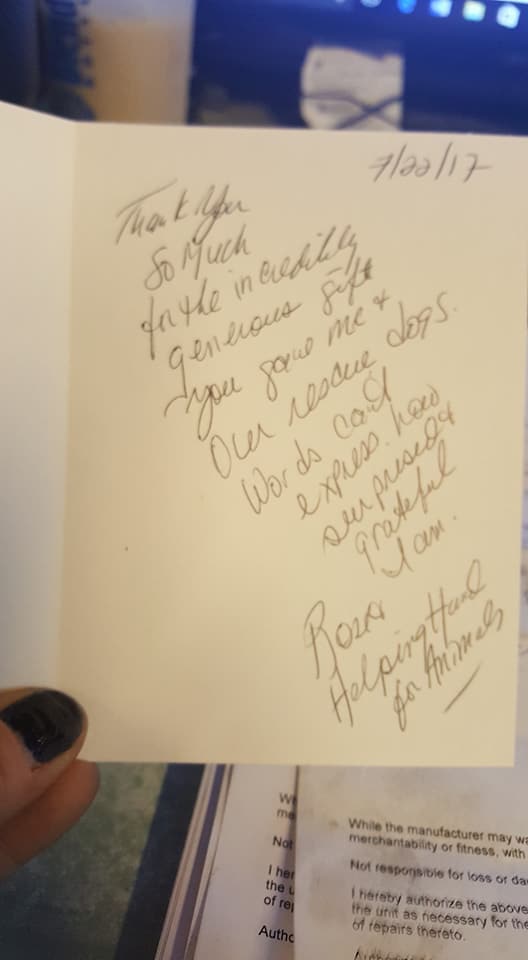 7/22/17
Thank You
So Much
for the incredibly
generous gift
you gave me &
Our rescue dogs.
Words can't
express how
surprised &
grateful
I am.
Helping Hand
for Animals
me
Not
I her
the u
of rep
Autho
While the manufacturer may wa
merchantability or fitness, with
Not responsible for loss or da
I hereby authorize the above
the unit as necessary for the
of repairs thereto.